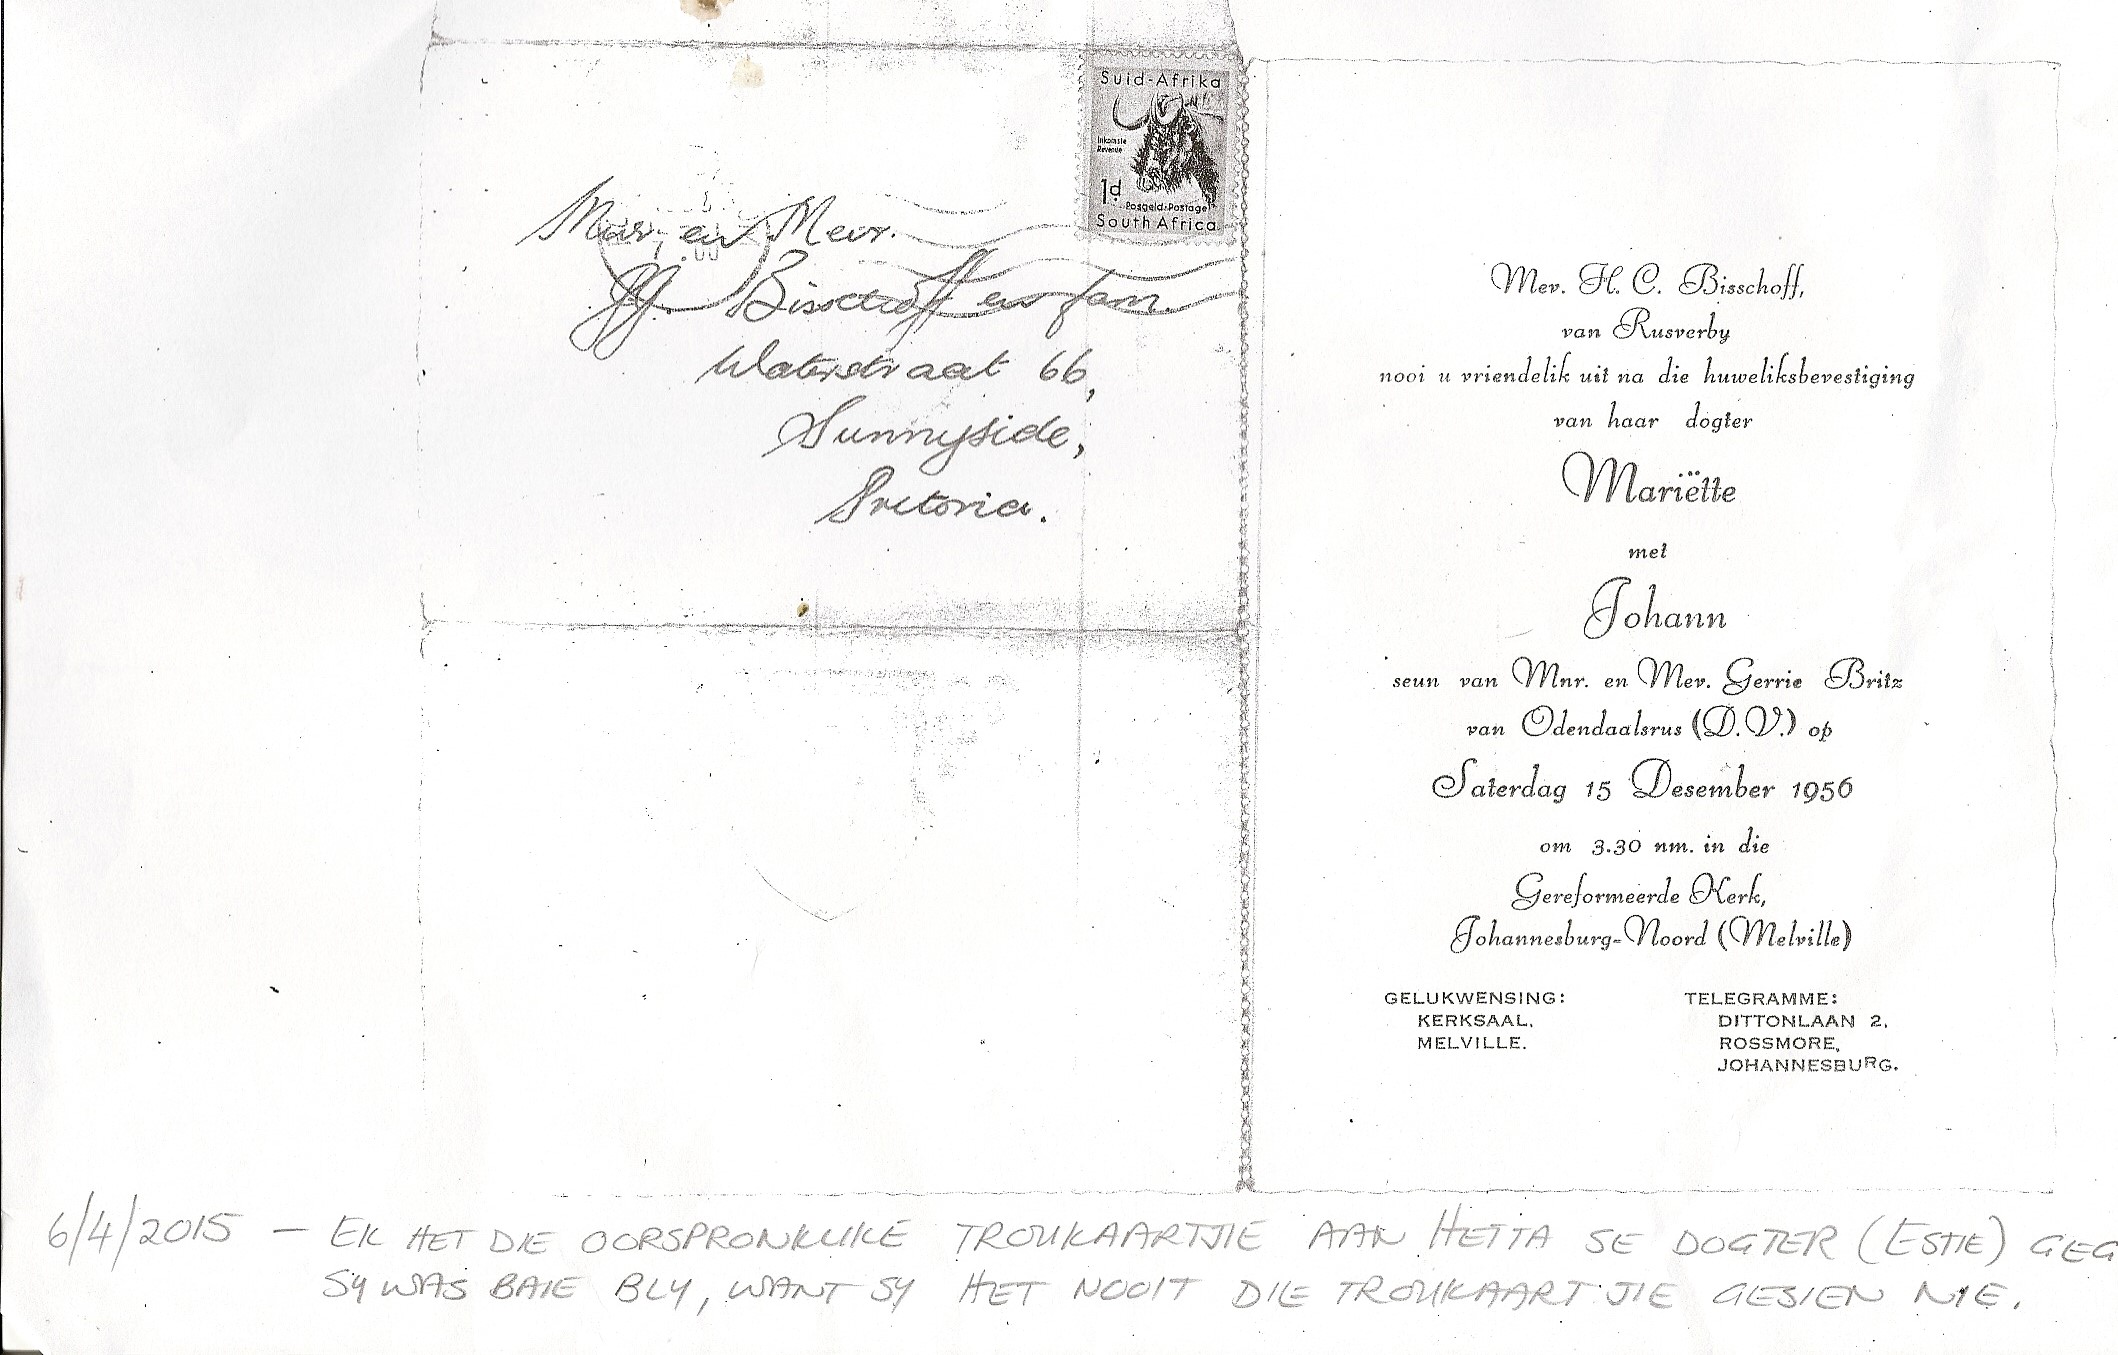 Suid-Afrika
Inkomste
Revenue
1d
Posgeld-Postage
South Africa
Mnr. en Mevr.
Bisschoff en fam.
Waterstraat 66,
Sunnyside,
Pretoria.
Mev. H. C. Bisschoff,
van Rusverby
nooi u vriendelik uit na die huweliksbevestiging
van haar dogter
Mariëtte
met
Johann
seun van Mnr. en Mev. Gerrie Britz
van Odendaalsrus (D.V.) op
Saterdag 15 Desember 1956
om 3.30 nm. in die
Gereformeerde Kerk,
Johannesburg-Noord (Melville)
GELUKWENSING:
KERKSAAL,
MELVILLE.
TELEGRAMME:
DITTONLAAN 2,
ROSSMORE,
JOHANNESBURG.
6/4/2015 — EK HET DIE OORSPRONKLIKE TROUKAARTJIE AAN HETTA SE DOGTER (ESTIE) GEG
SY WAS BAIE BLY, WANT SY HET NOOIT DIE TROUKAARTJIE GESIEN NIE.